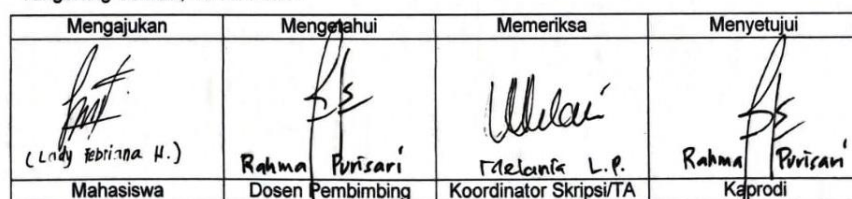 Mengajukan Mengetahui Memeriksa Menyetujui
(Lady Febrianna H.) Rahma Purisari Melania L.P. Rahma Purisari
Mahasiswa Dosen Pembimbing Koordinator Skripsi/TA Kaprodi